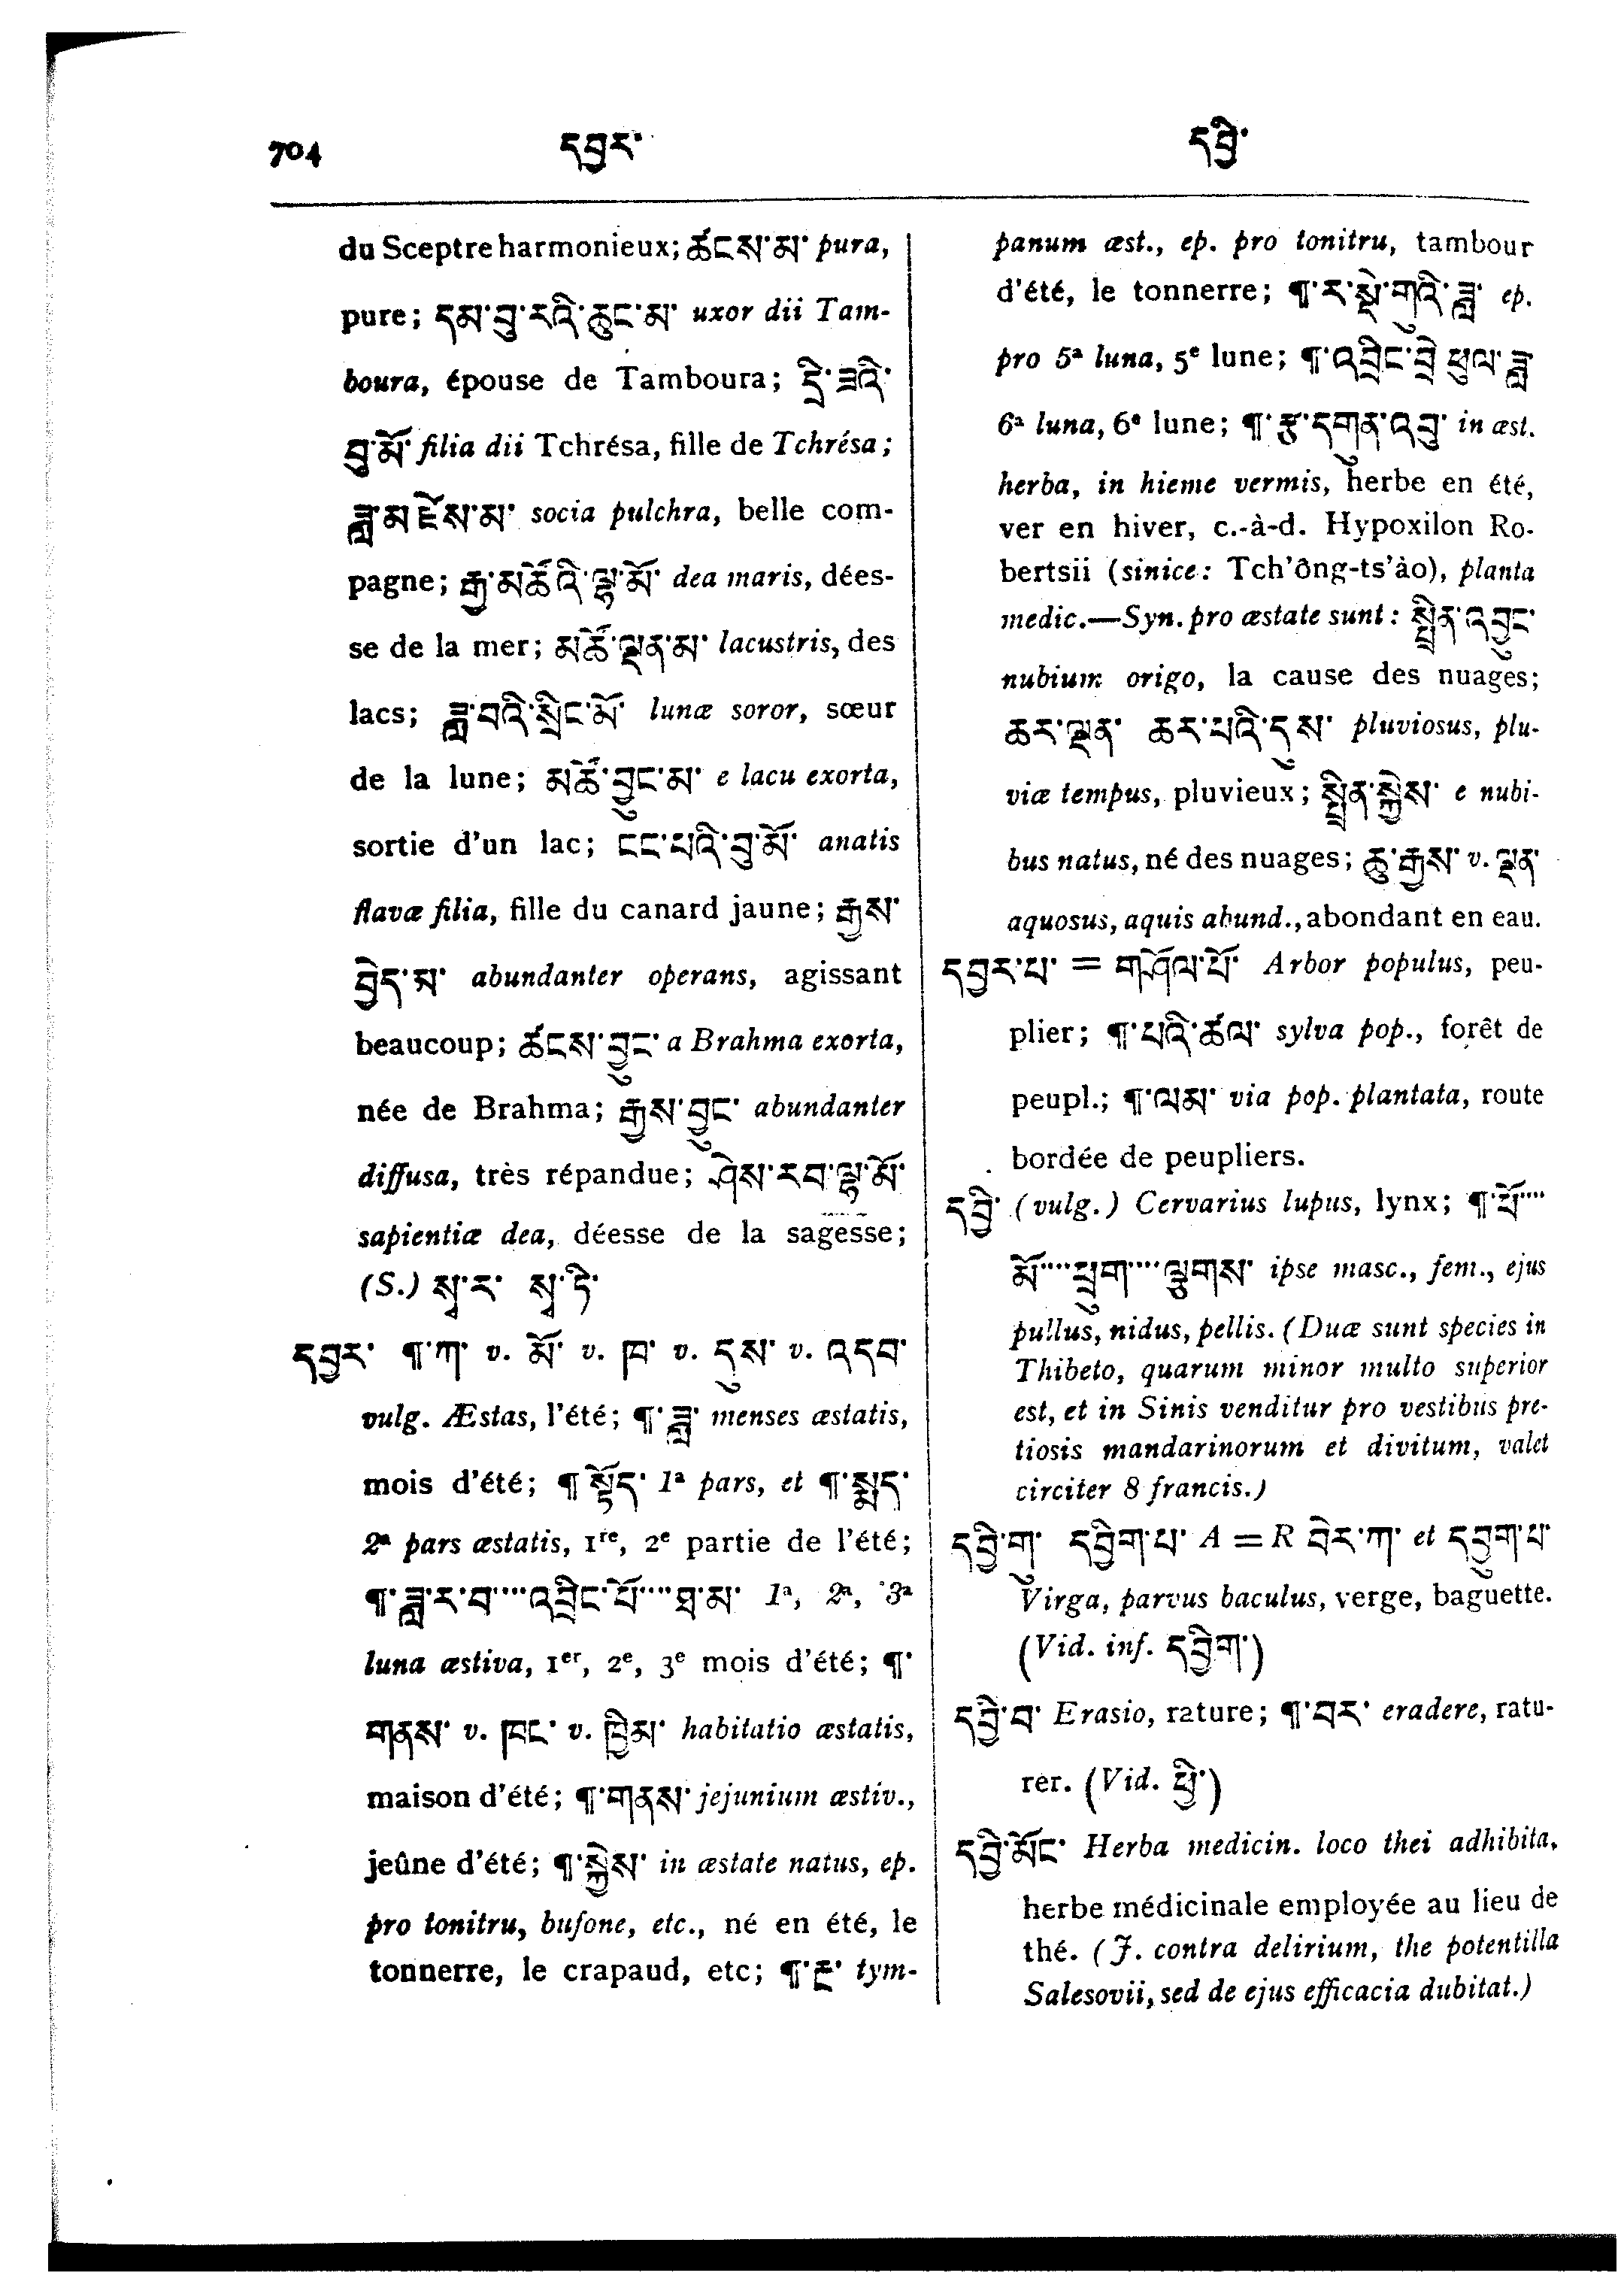 704
དབྱར་
དབྱི་
du Sceptre harmonieux; ཚངས་མ་ pura,
pure; དམ་བུ་རའི་ཆུང་མ་ uxor dii Tam-
boura, épouse de Tamboura; དྲི་ཟའི་
བུ་མོ་ filia dii Tchrésa, fille de Tchrésa;
ཟླ་མ་ཛེས་མ་ socia pulchra, belle com-
pagne; རྒྱ་མཚོའི་ལྷ་མོ་ dea maris, dées-
se de la mer; མཚོ་ལྡན་མ་ lacustris, des
lacs; ཟླ་བའི་སྲིང་མོ་ lunæ soror, sœur
de la lune; མཚོ་བྱུང་མ་ e lacu exorta,
sortie d'un lac; ངང་པའི་བུ་མོ་ anatis
flavæ filia, fille du canard jaune; རྒྱས་
བྱེད་མ་ abundanter operans, agissant
beaucoup; ཚངས་བྱུང་ a Brahma exorta,
née de Brahma; རྒྱས་བྱུང་ abundanter
diffusa, très répandue; ཤེས་རབ་ལྷ་མོ་
sapientiæ dea, déesse de la sagesse;
(S.)
དབྱར་ ¶་ཀ་ v. མོ་ v. ཁ་ v. དུས་ v. འདབ་
vulg. Æstas, l'été; ¶་ཟླ་ menses æstatis,
mois d'été; ¶ སྟོད་ 1ª pars, et ¶་སྨད་
2ª pars æstatis, 1re, 2e partie de l'été;
¶་ཟླ་ར་བ་····འབྲིང་པོ་····ཐ་མ་ 1ª, 2ª, 3ª
luna æstiva, 1er, 2e, 3e mois d'été; ¶་
གནས་ v. ཁང་ v. ཁྱིམ་ habitatio æstatis,
maison d'été; ¶་གནས་ jejunium æstiv.,
jeûne d'été; ¶་སྐྱེས་ in æstate natus, ep.
pro tonitru, bufone, etc., né en été, le
tonnerre, le crapaud, etc; ¶་རྔ་ tym-
panum æst., ep. pro tonitru, tambour
d'été, le tonnerre; ¶་ར་སྔེ་གུའི་ཟླ་ ep.
pro 5ª luna, 5e lune; ¶་འབྲིང་བྲེ་ཕུལ་ཟླ་
6ª luna, 6e lune; ¶་རྩྭ་དགུན་འབུ་ in æst.
herba, in hieme vermis, herbe en été,
ver en hiver, c.-à-d. Hypoxilon Ro-
bertsii (sinice: Tch'ông-ts'ào), planta
medic.—Syn. pro æstate sunt: སྤྲིན་འབྱུང་
nubium origo, la cause des nuages;
ཆར་ལྡན་ ཆར་པའི་དུས་ pluviosus, plu-
viæ tempus, pluvieux; སྤྲིན་སྐྱེས་ e nubi-
bus natus, né des nuages; ཆུ་རྒྱས་ v. ལྡན་
aquosus, aquis abund., abondant en eau.
དབྱར་པ་ = གཤོལ་པོ་ Arbor populus, peu-
plier; ¶་པའི་ཚལ་ sylva pop., forêt de
peupl.; ¶་ལམ་ via pop. plantata, route
bordée de peupliers.
དབྱི་ (vulg.) Cervarius lupus, lynx; ¶་ཕོ་····
མོ་····ཕྲུག་····ལྤགས་ ipse masc., fem., ejus
pullus, nidus, pellis. (Duæ sunt species in
Thibeto, quarum minor multo superior
est, et in Sinis venditur pro vestibus pre-
tiosis mandarinorum et divitum, valet
circiter 8 francis.)
དབྱི་གུ་ དབྱིག་པ་ A = R བེར་ཀ་ et དབྱུག་པ་
Virga, parvus baculus, verge, baguette.
(Vid. inf. དབྱིག་)
དབྱི་བ་ Erasio, rature; ¶་བར་ eradere, ratu-
rer. (Vid. ཕྱི་)
དབྱི་མོང་ Herba medicin. loco thei adhibita,
herbe médicinale employée au lieu de
thé. (J. contra delirium, the potentilla
Salesovii, sed de ejus efficacia dubitat.)